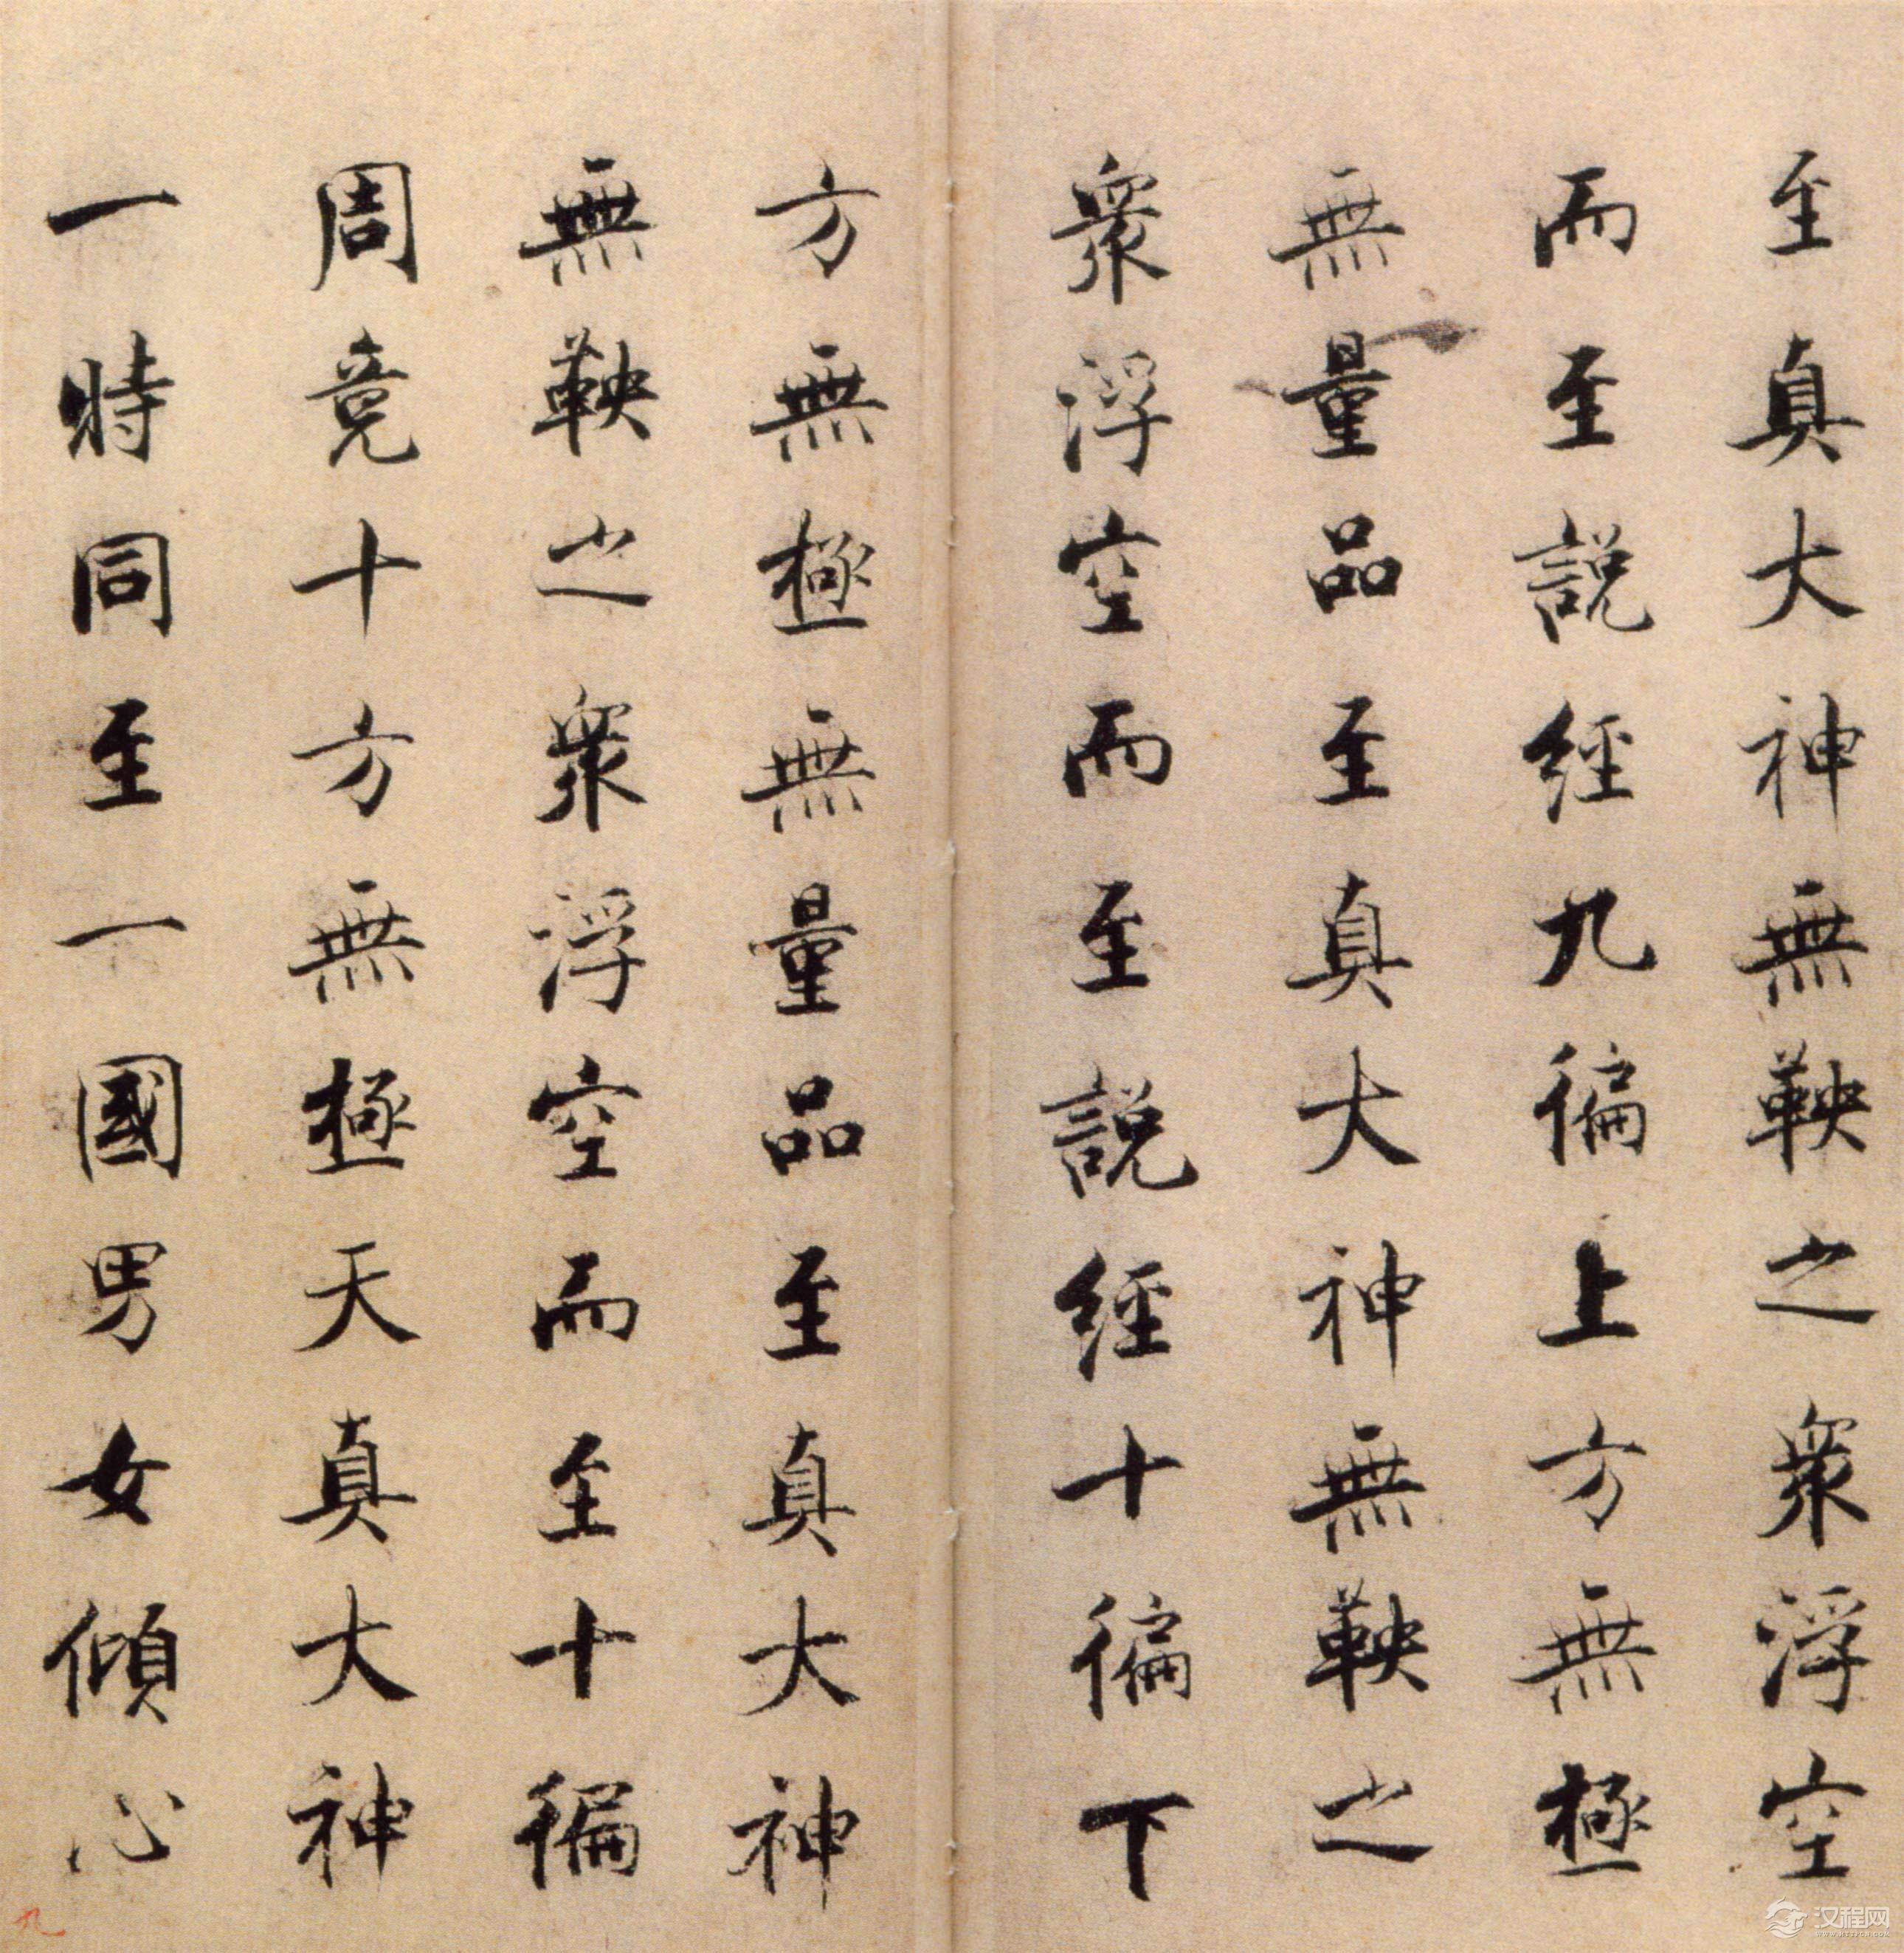 至真大神無鞅之衆浮空
而至説經九徧上方無極
無量品至真大神無鞅之
衆浮空而至説經十徧下
方無極無量品至真大神
無鞅之衆浮空而至十徧
周竟十方無極天真大神
一時同至一國男女傾心
九
汉程网
WWW.HTTPCN.COM